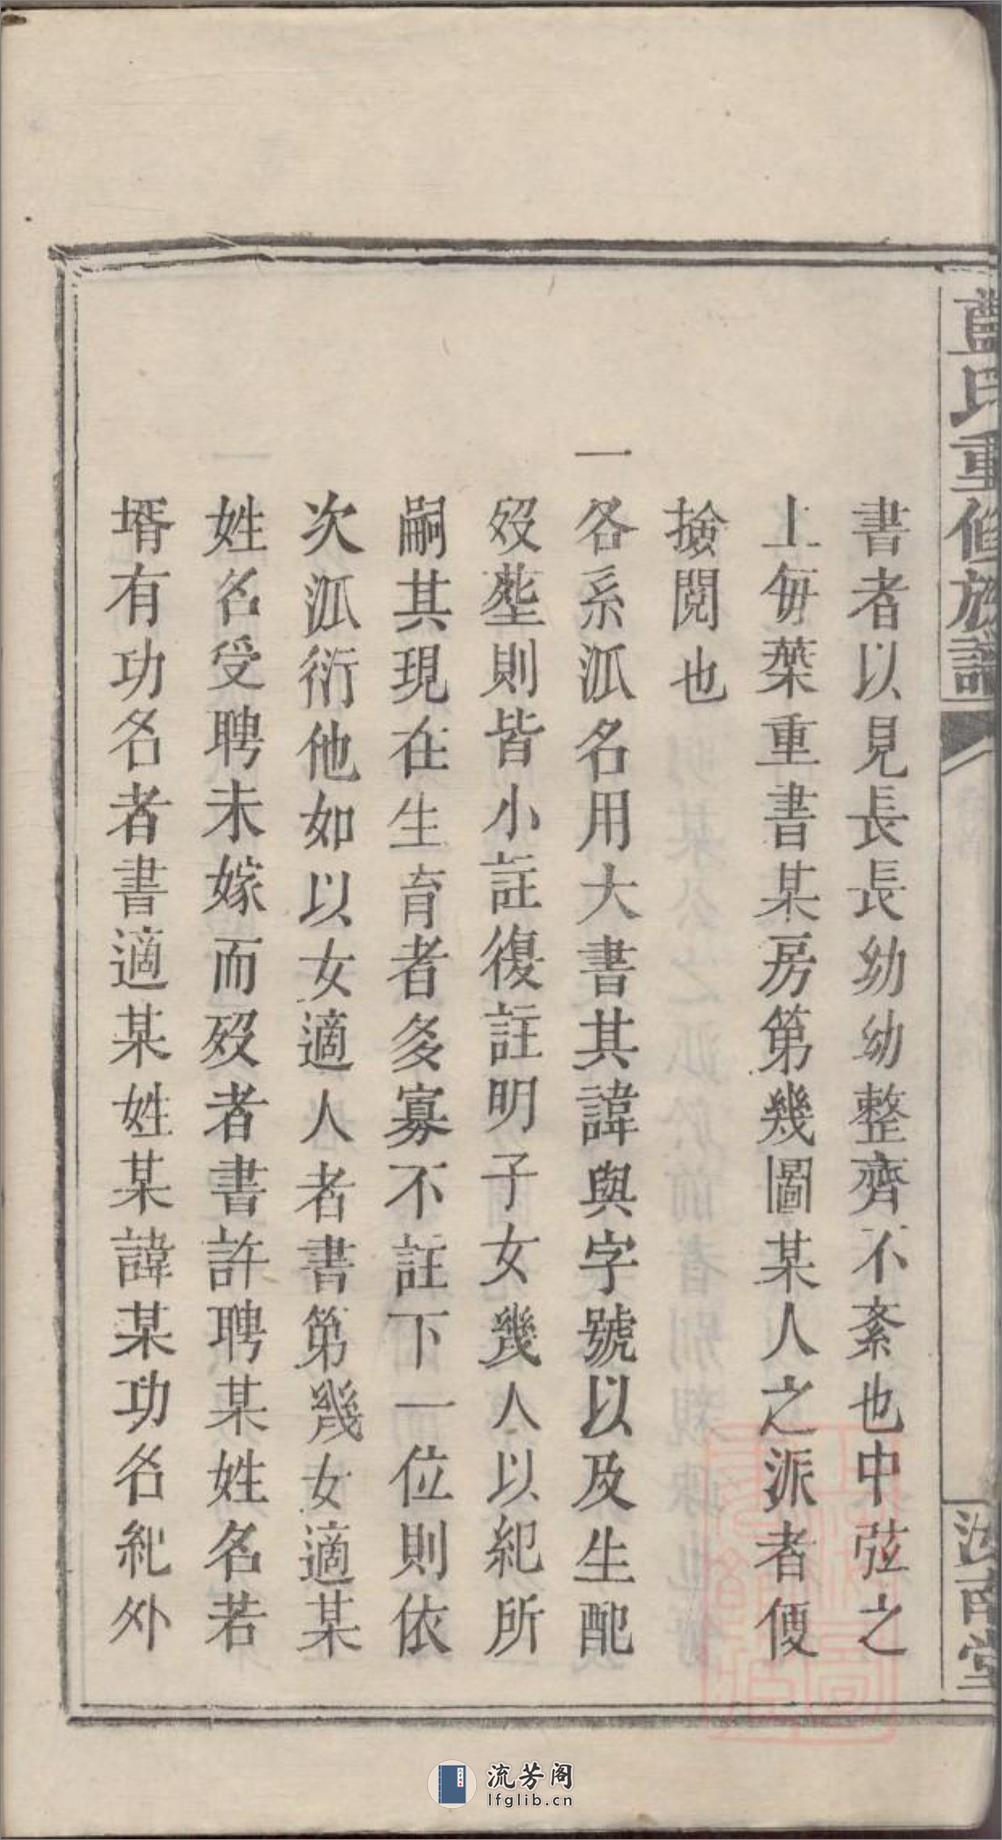 藍氏重修族譜
汝南堂
書者以見長長幼幼整齊不紊也中弦之
上每葉重書某房第幾圖某人之派者便
撿閱也
一各系派名用大書其諱與字號以及生配
歿塟則皆小註復註明子女幾人以紀所
嗣其現在生育者多寡不註下一位則依
次派衍他如以女適人者書第幾女適某
姓名受聘未嫁而歿者書許聘某姓名若
壻有功名者書適某姓某諱某功名紀外
流芳阁
lfglib.cn